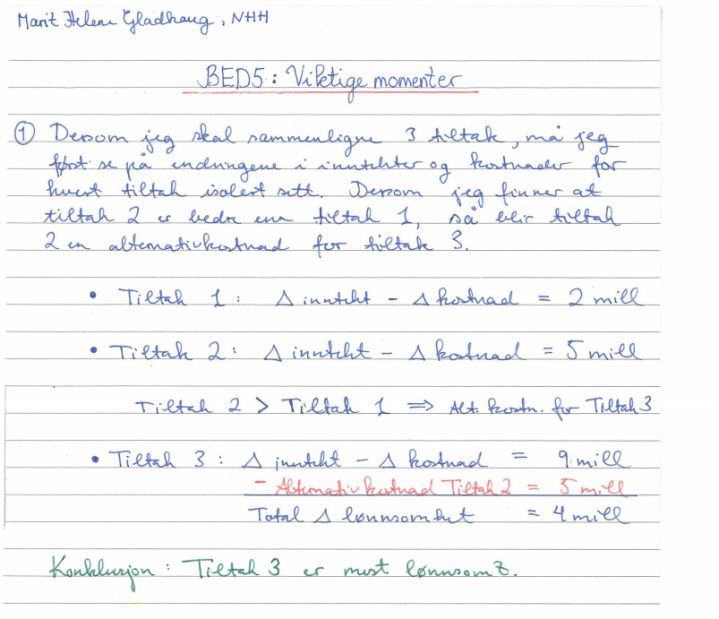 Marit Helene Gladhaug, NHH
BED5: Viktige momenter
① Dersom jeg skal sammenligne 3 tiltak, må jeg
først se på endringene i inntekter og kostnader for
hvert tiltak isolert sett. Dersom jeg finner at
tiltak 2 er bedre enn tiltak 1, så blir tiltak
2 en alternativkostnad for tiltak 3.
• Tiltak 1: Δ inntekt - Δ kostnad = 2 mill
• Tiltak 2: Δ inntekt - Δ kostnad = 5 mill
Tiltak 2 > Tiltak 1 ⇒ Alt. kostn. for Tiltak 3
• Tiltak 3: Δ inntekt - Δ kostnad = 9 mill
- Alternativkostnad Tiltak 2 = 5 mill
Total Δ lønnsomhet = 4 mill
Konklusjon: Tiltak 3 er mest lønnsomt.